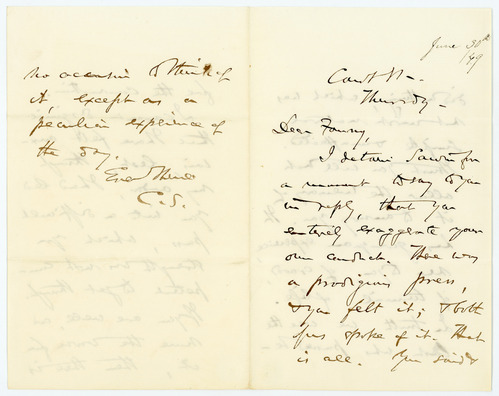 June 30th
/49
Court St-
Thursday-
Dear Fanny,
I detain Sawin for
a moment to say to you
in reply, that you
entirely exaggerate your
own conduct. There was
a prodigious press,
& you felt it; & both
of us spoke of it. That
is all. You said &
no occasion to think of
it, except as a
peculiar experience of
the day.
Ever Thine
C.S.